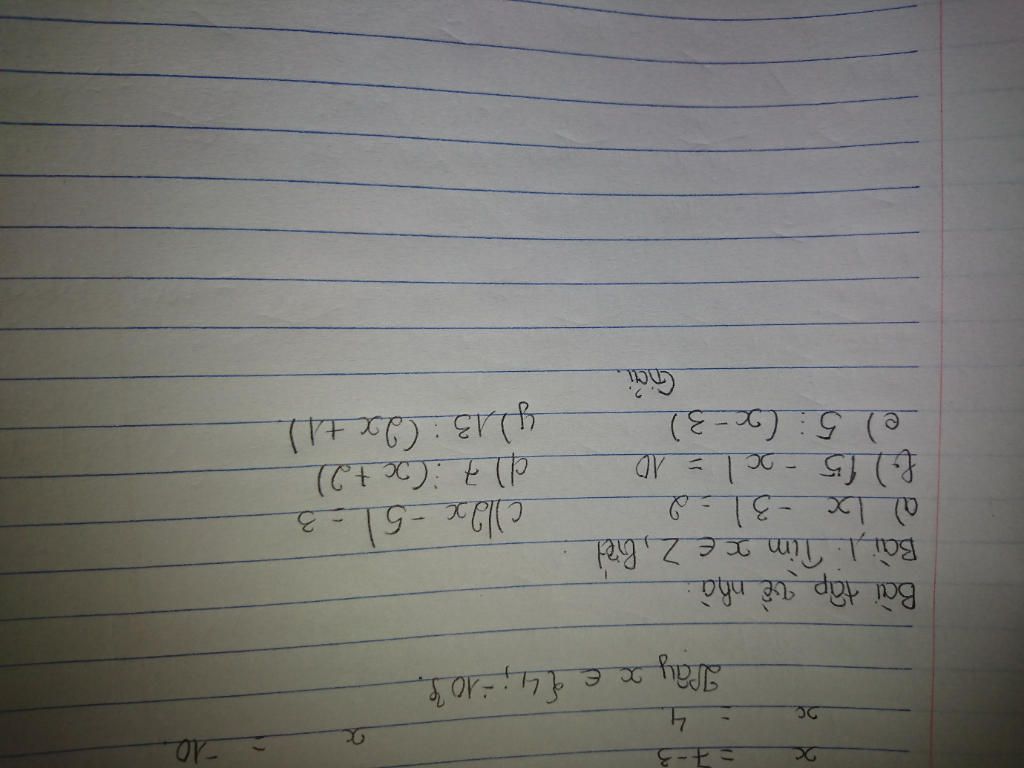 x = 7-3 x = -10
x = 4
Vậy x ∈ {4; -10}.
Bài tập về nhà:
Bài 1: Tìm x ∈ Z, biết
a) |x - 3| = 2 c) |2x - 5| = 3
b) |5 - x| = 10 d) 7 ⋮ (x + 2)
e) 5 ⋮ (x - 3) g) 13 ⋮ (2x + 1)
Giải.